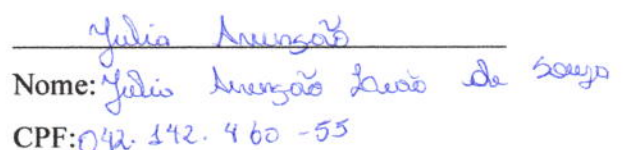 Julia Anunção
Nome: Julia Anunção Leão de Souza
CPF: 042.142.460-55